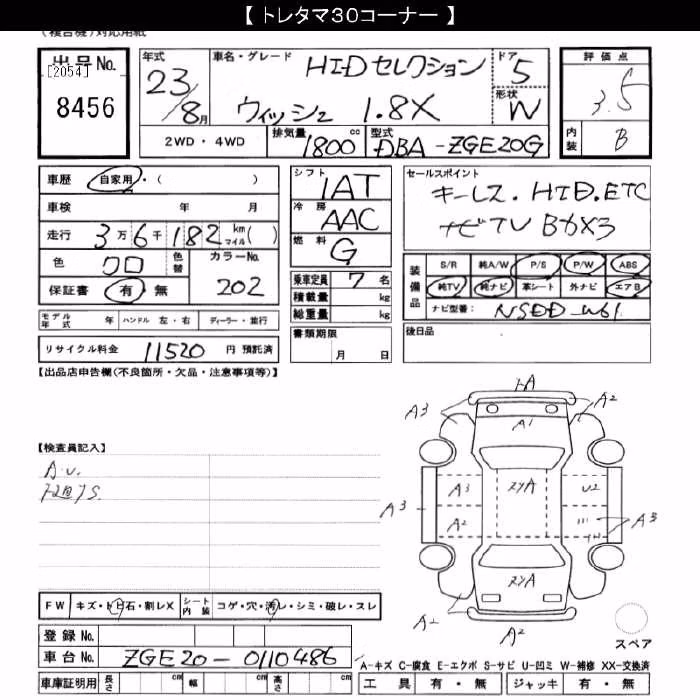 【 トレタマ30コーナー 】
(複合機)対応用紙
出品No.
[2054]
8456
年式
23/8月
車名・グレード
HIDセレクション
ウィッシュ 1.8X
ドア
5
形状
W
評価点
3.5
内装
B
2WD・4WD
排気量
1800 cc
型式
DBA-ZGE20G
車歴
自家用・( )
車検 年 月
走行 3万6千182 km マイル( )
色
クロ
色替
カラーNo.
202
保証書 有・無
モデル年式 年
ハンドル 左・右
ディーラー・並行
リサイクル料金 11520 円 預託済
シフト
IAT
冷房
AAC
燃料
G
乗車定員 7 名
積載量 kg
総重量 kg
書類期限
月 日
セールスポイント
キーレス. HID.ETC
ナビTV
装備品
S/R 純A/W P/S P/W ABS
純TV 純ナビ 革シート 外ナビ エアB
ナビ型番: NSDD-W61
後日品
【出品店申告欄(不良箇所・欠品・注意事項等)】
【検査員記入】
A.U.
FW
キズ・トビ石・割レX
シート内装
コゲ・穴・汚レ・シミ・破レ・スレ
登録No.
車台No. ZGE20-0110486
車庫証明用
長さ cm
幅 cm
高さ cm
A3
A2
A1
A3
A2
U2
A3
A3
A2
A2
スペア
A-キズ C-腐食 E-エクボ S-サビ U-凹ミ W-補修 XX-交換済
工具 有・無
ジャッキ 有・無